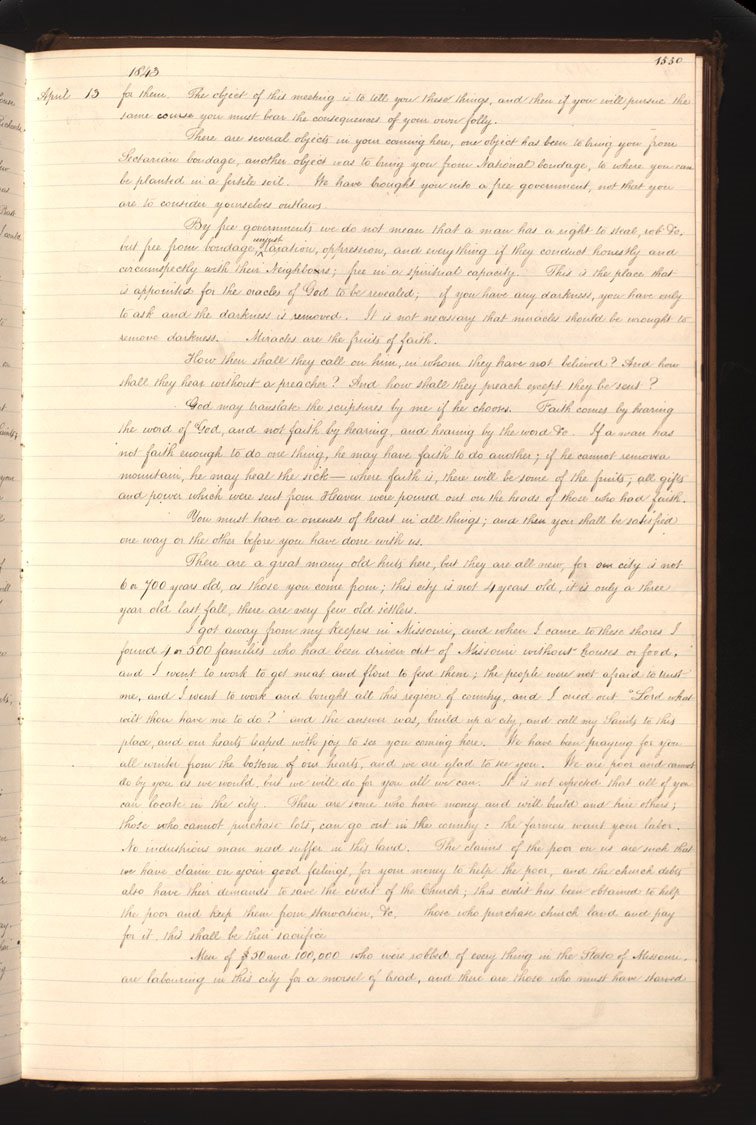 1530
1843
April 13 for them. The object of this meeting is to tell you these things, and then if you will pursue the
same course you must bear the consequences of your own folly.
There are several objects in your coming here, one object has been to bring you from
Sectarian bondage, another object was to bring you from National bondage, to where you can
be planted in a fertile soil. We have brought you into a free government, not that you
are to consider yourselves outlaws
By free governments we do not mean that a man has a right to steal, rob &c.
but free from bondage, unjust taxation, oppression, and every thing if they conduct honestly and
circumspectly with their Neighbours; free in a spiritual capacity. This is the place that
is appointed for the oracles of God to be revealed; if you have any darkness, you have only
to ask and the darkness is removed. It is not necessary that miracles should be wrought to
remove darkness. Miracles are the fruits of faith.
How then shall they call on him, in whom they have not believed? And how
shall they hear without a preacher? And how shall they preach except they be sent?
God may translate the scriptures by me if he choose. Faith comes by hearing
the word of God, and not faith by hearing, and hearing by the word &c. If a man has
not faith enough to do one thing, he may have faith to do another; if he cannot remove a
mountain, he may heal the sick — where faith is, there will be some of the fruits; all gifts
and power which were sent from Heaven were poured out on the heads of those who had faith.
You must have a oneness of heart in all things; and then you shall be satisfied
one way or the other before you have done with us.
There are a great many old huts here, but they are all new, for our city is not
6 or 700 years old, as those you come from; this city is not 4 years old, it is only a three
year old last fall, there are very few old settlers.
I got away from my keepers in Missouri, and when I came to these shores I
found 4 or 500 families who had been driven out of Missouri without houses or food,
and I went to work to get meat and flour to feed them; the people were not afraid to trust
me, and I went to work and bought all this region of country, and I cried out "Lord what
wilt thou have me to do?" and the answer was, build up a city, and call my Saints to this
place, and our hearts leaped with joy to see you coming here. We have been praying for you
all winter from the bottom of our hearts, and we are glad to see you. We are poor and cannot
do by you as we would, but we will do for you all we can. It is not expected that all of you
can locate in the city. There are some who have money and will build and hire others;
those who cannot purchase lots, can go out in the country: the farmers want your labor.
No industrious man need suffer in this land. The claims of the poor on us are such that
we have claim on your good feelings, for your money to help the poor, and the church debts
also have their demands to save the credit of the Church; this credit has been obtained to help
the poor and keep them from starvation, &c. those who purchase church land and pay
for it, this shall be their sacrifice
Men of $50 and 100,000 who were robbed of every thing in the State of Missouri,
are labouring in this city for a morsel of bread, and there are those who must have starved